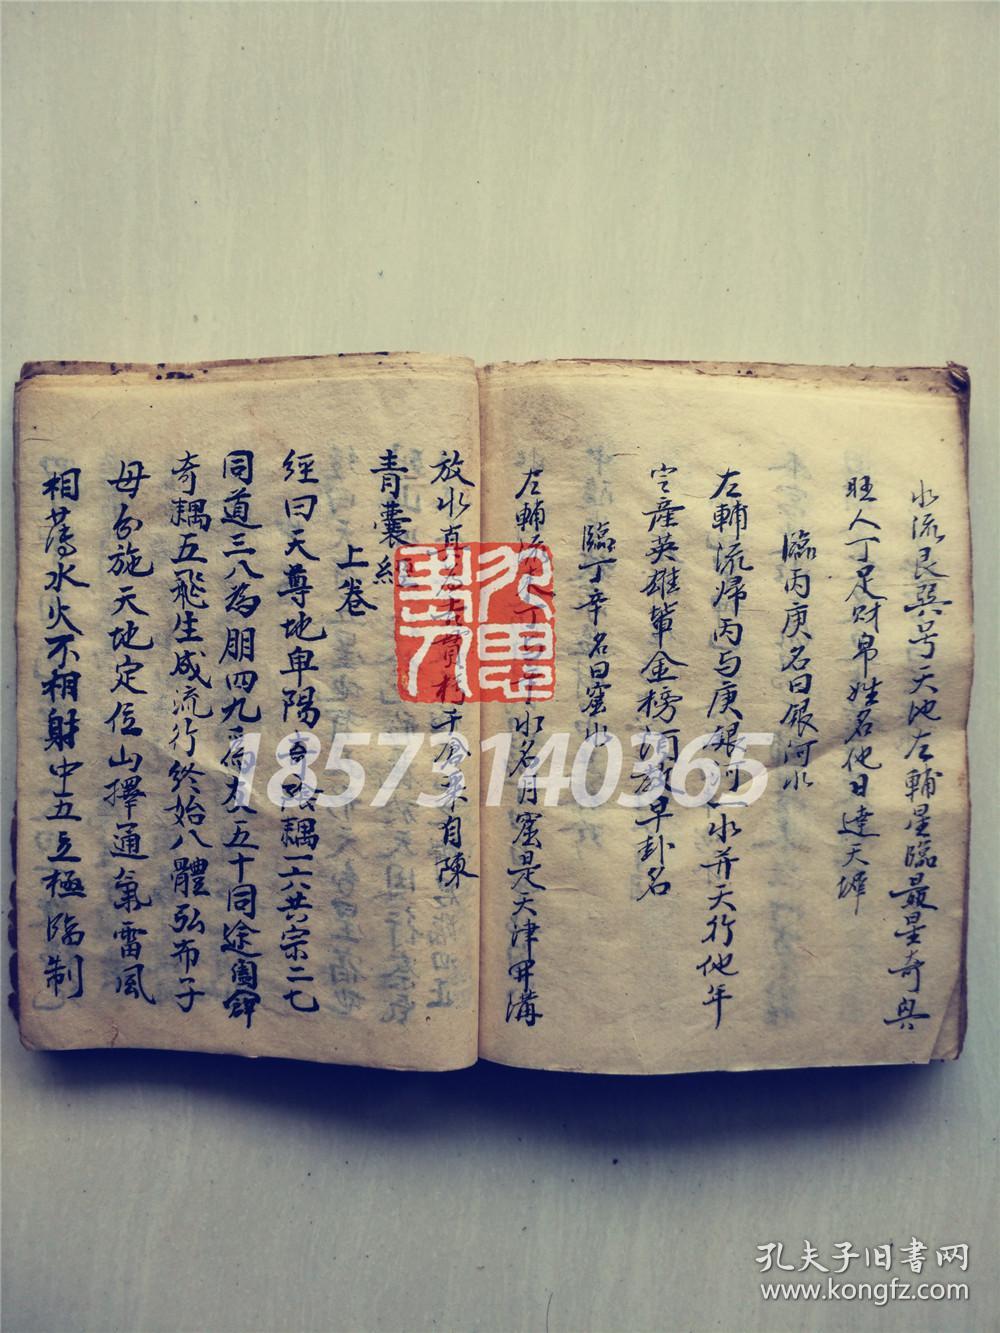 水流艮巽号天池左輔星臨最是奇興
旺人丁足財帛姓名他日達天墀
臨丙庚名曰銀河水
左輔流歸丙与庚銀河一水并天行他年
定產英雄輩金榜須教早卦名
臨丁辛名曰窟水
左輔流 丁与辛水名月窟是天津開溝
放水真 千倉来自陳
青囊經
上卷
經曰天尊地卑陽奇陰耦一六共宗二七
同道三八為朋四九為友五十同途闔闢
奇耦五飛生成流行終始八體弘布子
母分施天地定位山擇通氣雷風
相薄水火不相射中五立極臨制
18573140365
孔夫子旧書网
www.kongfz.com